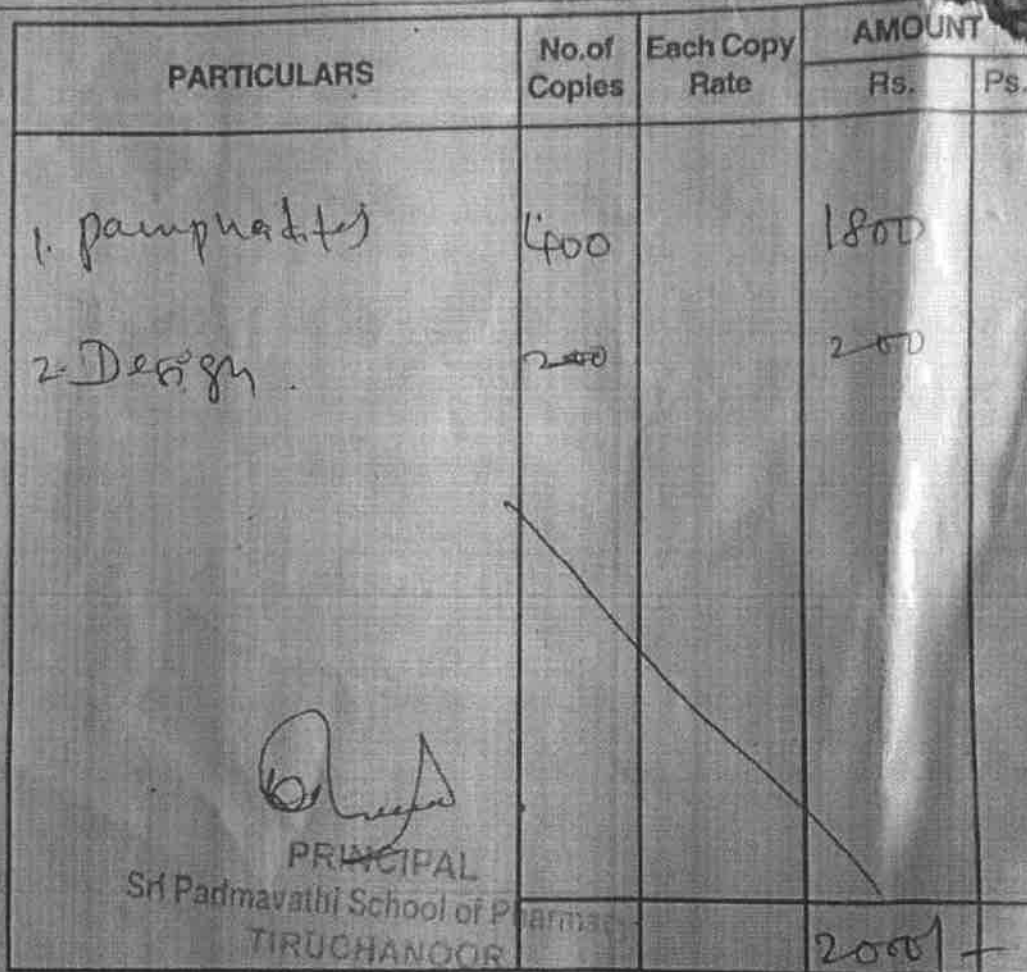 PARTICULARS No.of Copies Each Copy Rate AMOUNT Rs. Ps.
1. pamphattes 400 1800
2. Design. 200 200
PRINCIPAL
Sri Padmavathi School of Pharmacy
TIRUCHANOOR
2000/-